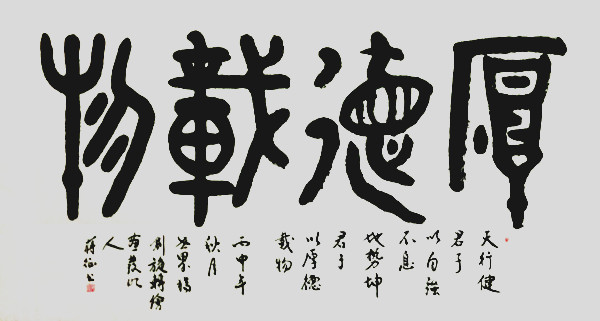 厚德載物
天行健
君子
以自强
不息
地势坤
君子
以厚德
載物
丙申年
秋月
人